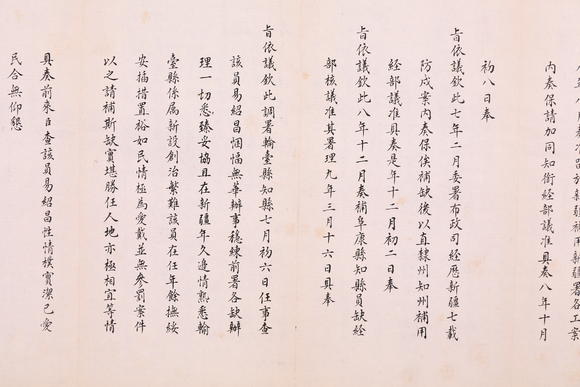 新疆補用新疆署各工案
內奏保請加同知銜經部議准具奏八年十月
初八日奉
旨依議欽此七年二月委署布政司經歷新疆七載
防戍案內奏保俟補缺後以直隸州知州補用
經部議准具奏是年十二月初二日奉
旨依議欽此八年十二月奏補阜康縣知縣員缺經
部核議准其署理九年三月十六日具奏
旨依議欽此調署輪臺縣知縣七月初六日任事查
該員易紹昌悃愊無華辦事穩練前署各缺辦
理一切悉臻妥協且在新疆年久邊情熟悉輪
臺縣係屬新設創治繁難該員在任年餘撫綏
安插措置裕如民情極為愛戴並無參罰案件
以之請補斯缺實堪勝任人地亦極相宜等情
具奏前來臣查該員易紹昌性情樸實潔己愛
民合無仰懇